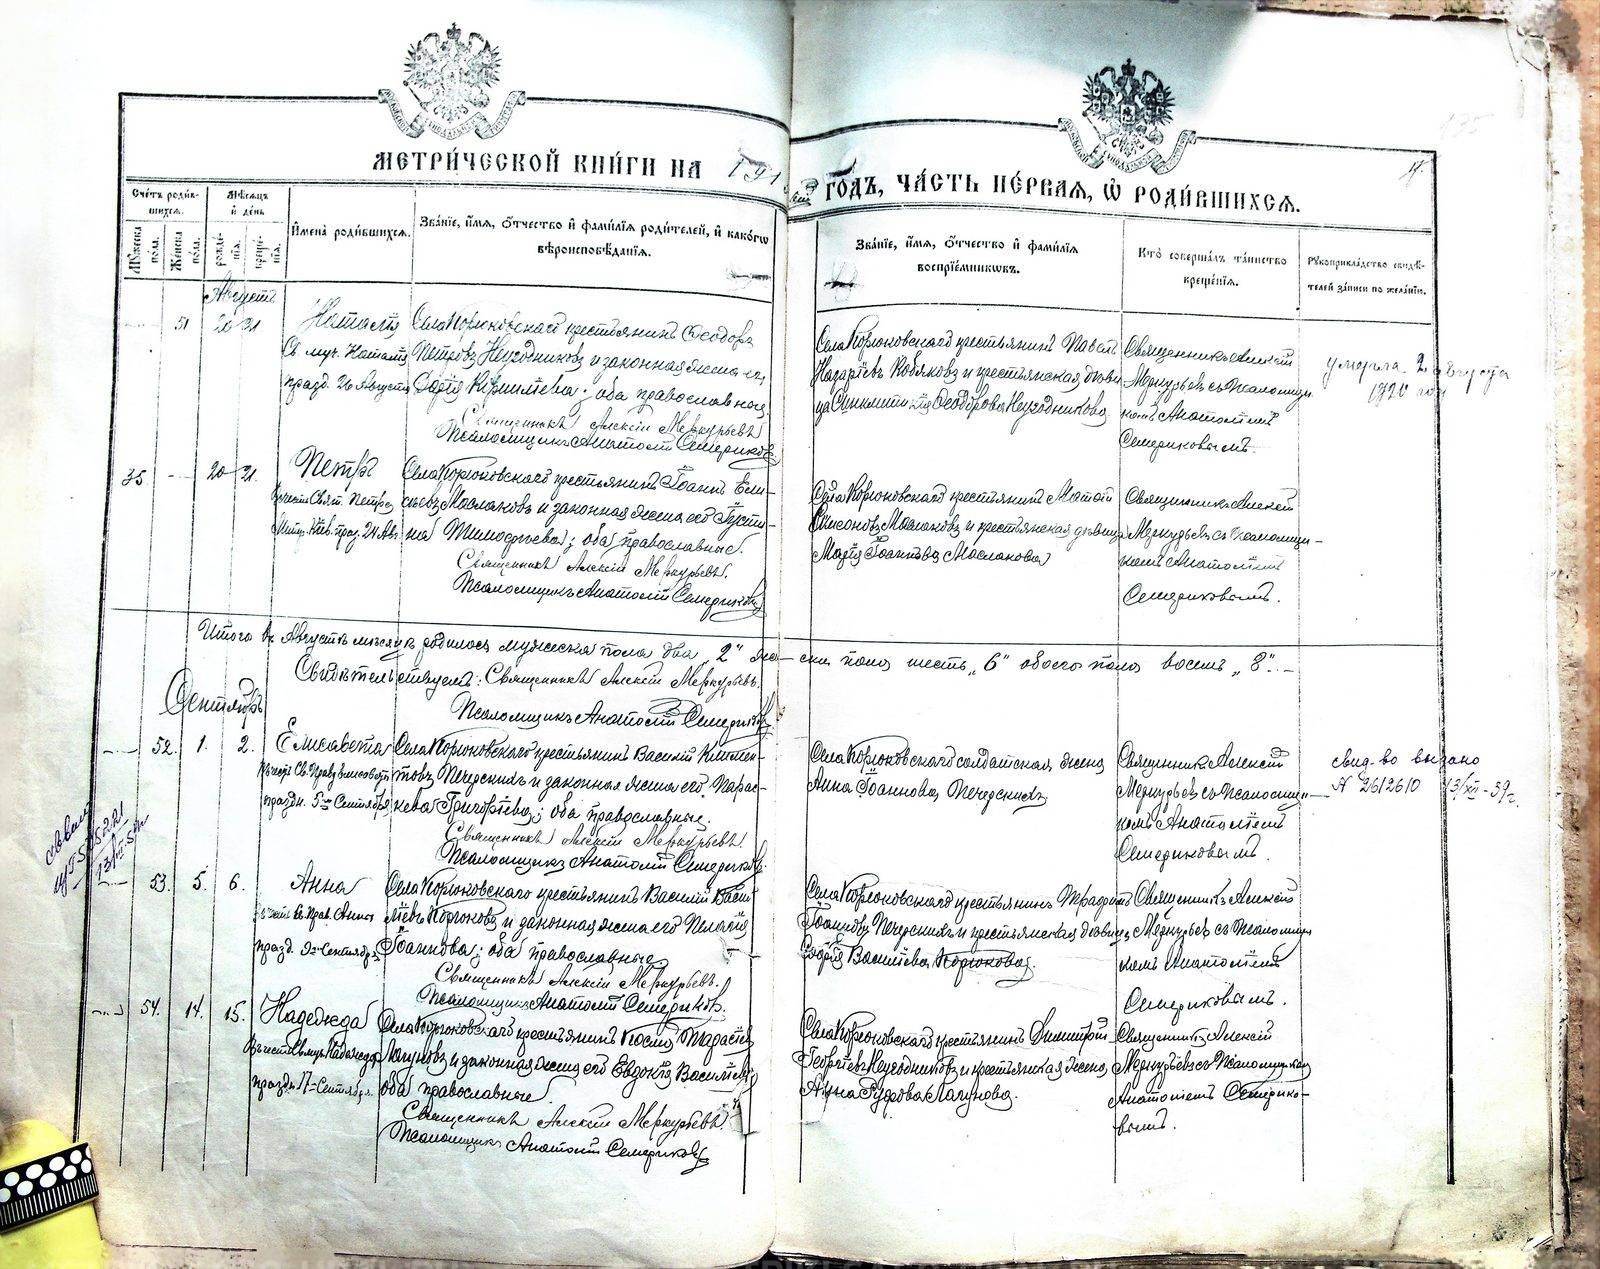 МЕТРИ́ЧЕСКОЙ КНИ́ГИ НА 191
ГОДЪ, ЧА́СТЬ ПЕ́РВАЯ, Ѡ РОДИ́ВШИХСЯ.
135
Сче́тъ роди́вшихся.
Мѣ́сяцъ и де́нь
Мужеска пола.
Женска пола.
рожде́нія.
креще́нія.
Имена̀ роди́вшихся.
Зва́ніе, и́мя, о́тчество и фами́лія роди́телей, и како́гѡ
вѣроисповѣ́данія.
Зва́ніе, и́мя, о́тчество и фами́лія
воспріе́мниковъ.
Кто̀ соверша́лъ та́инство
креще́нія.
Рукоприкла́дство свидѣ́-
телей за́писи по жела́нію.
Августъ
51 20 21
Наталія
Св. муч. Наталіи
празд. 26 Августа
Села Корюковскаго крестьянинъ Ѳеодоръ
Петровъ Неугодниковъ и законная жена его,
Кириллова; оба православные.
Священникъ Алексій Меркурьевъ
Псаломщикъ Анатолій Семериковъ
Села Корюковскаго крестьянинъ Павелъ
Назаріевъ Кобяковъ и крестьянская дѣви
ца Синклитикія Ѳеодорова Неугодникова
Священникъ Алексій
Меркурьевъ съ Псаломщи
комъ Анатоліемъ
Семериковымъ.
умерла 2 августа
1920 год
35 20 21.
Петръ
празд. 24 Авг.
Села Корюковскаго крестьянинъ Іоаннъ Ели-
сѣевъ Маслаковъ и законная жена его Іусти-
на Тимофѣева; оба православные.
Священникъ Алексій Меркурьевъ.
Псаломщикъ Анатолій Семериковъ
Села Корюковскаго крестьянинъ
Маслаковъ и крестьянская дѣвица
Марія Іоаннова Маслакова
Священникъ Алексій
Меркурьевъ съ Псаломщи-
комъ Анатоліемъ
Семериковымъ.
Итого въ Августѣ мѣсяцѣ родилось мужеска пола два „2" женска пола шесть „6" обоего пола восемь „8".
Свидѣтельствуемъ: Священникъ Алексій Меркурьевъ.
Псаломщикъ Анатолій Семериковъ
Сентябрь
52. 1. 2.
Елисавета
праздн. 5го Сентября
Села Корюковскаго крестьянинъ Василій Климен-
товъ Печерскихъ и законная жена его Парас-
кева Григорьева; оба православные.
Священникъ Алексій Меркурьевъ.
Псаломщикъ Анатолій Семериковъ
Села Корюковскаго солдатская жена
Анна Іоаннова Печерскихъ
Священникъ Алексій
Меркурьевъ съ Псаломщи-
комъ Анатоліемъ
Семериковымъ.
свид-во выдано
№ 2612610 13/XII-59г.
53. 5. 6.
Анна
празд. 9го Сентября
Села Корюковскаго крестьянинъ Василій Васи-
ліевъ Корюковъ и законная жена его Пелагія
Іоаннова; оба православные.
Священникъ Алексій Меркурьевъ.
Псаломщикъ Анатолій Семериковъ.
Села Корюковскаго крестьянинъ
Іоанновъ Печерскихъ и крестьянская дѣвица
Васильева Корюкова.
Священникъ Алексій
Меркурьевъ съ Псаломщи
комъ Анатоліемъ
Семериковымъ.
54. 14. 15.
Надежда
праздн. 17 Сентября
Села Корюковскаго крестьянинъ
Лагуновъ и законная жена его Евдокія Васильева
оба православные.
Священникъ Алексій Меркурьевъ.
Псаломщикъ Анатолій Семериковъ
Села Корюковскаго крестьянинъ Димитрій
Георгіевъ Неугодниковъ и крестьянская жена
Анна Руфова Лагунова.
Священникъ Алексій
Меркурьевъ съ Псаломщикомъ
Анатоліемъ Семерико-
вымъ.